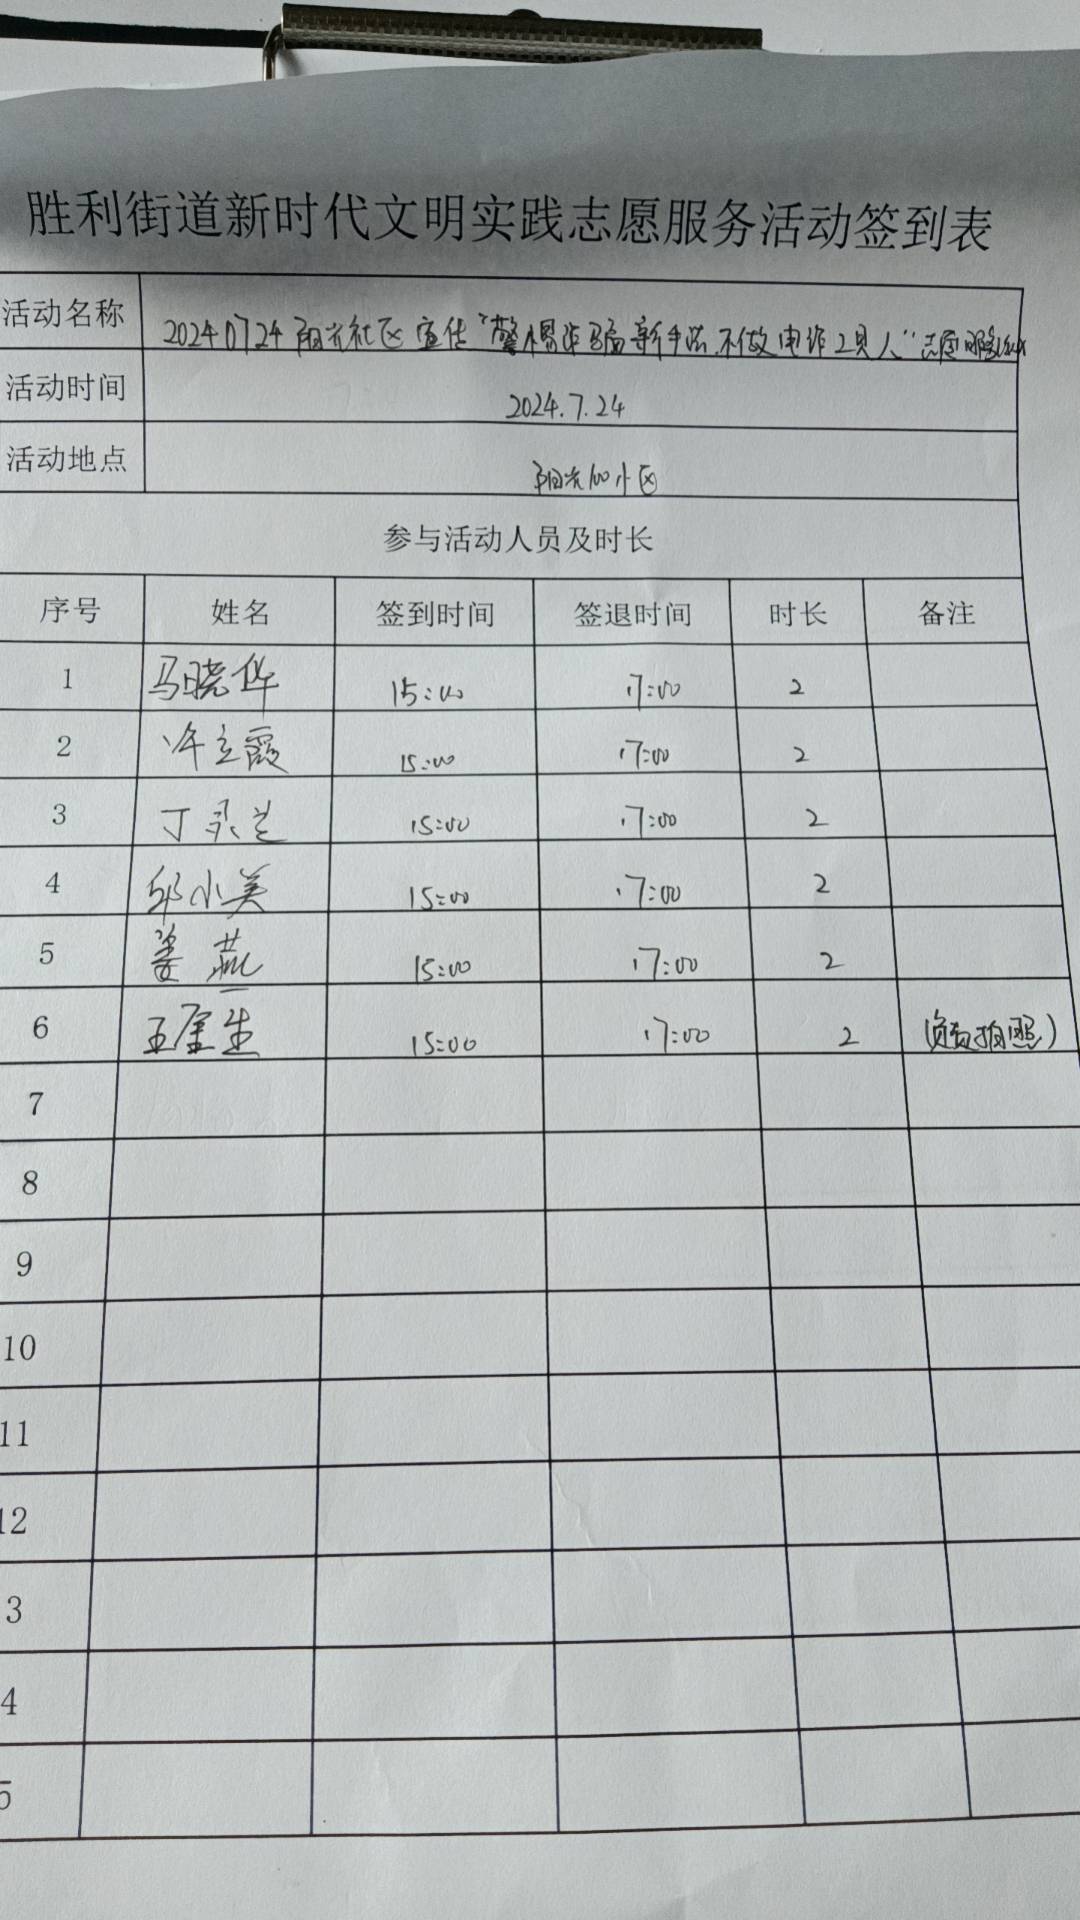 胜利街道新时代文明实践志愿服务活动签到表
活动名称 20240724阳光社区宣传“警惕诈骗新手法,不做电诈工具人”志愿服务活动
活动时间 2024.7.24
活动地点 阳光100小区
参与活动人员及时长
序号 姓名 签到时间 签退时间 时长 备注
1 马晓华 15:00 17:00 2
2 许立霞 15:00 17:00 2
3 丁灵芝 15:00 17:00 2
4 邹小美 15:00 17:00 2
5 姜燕 15:00 17:00 2
6 王金生 15:00 17:00 2 (负责拍照)
7
8
9
10
11
12
3
4
5